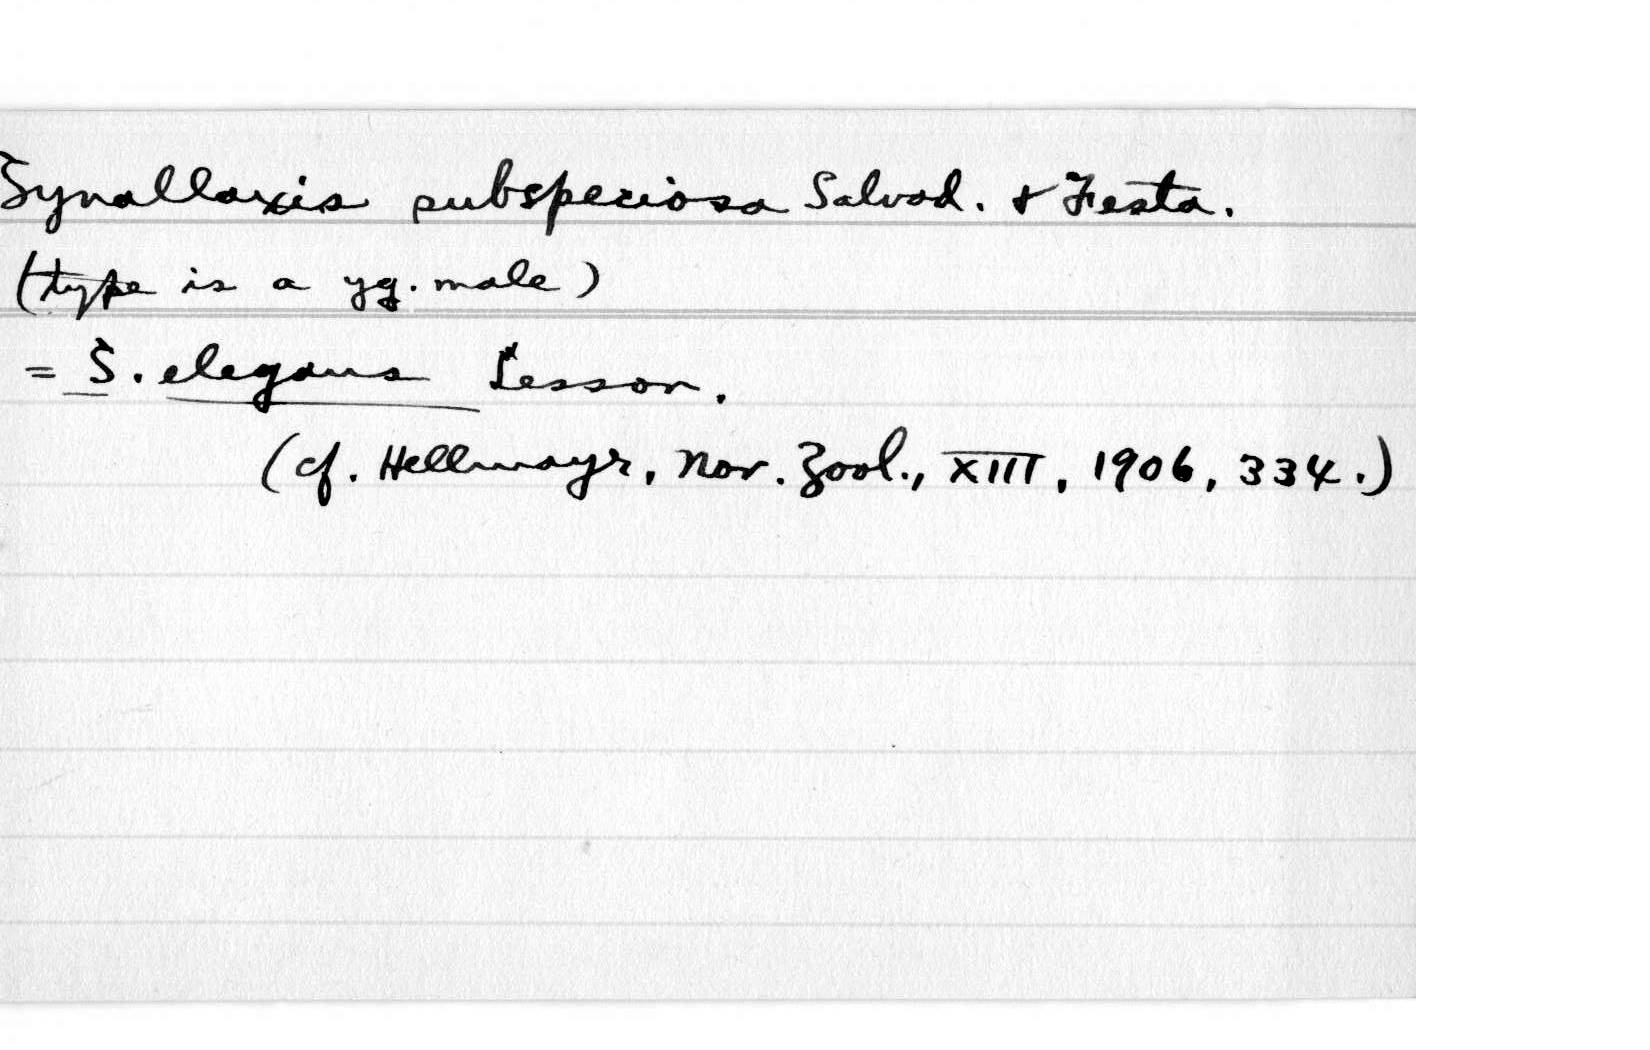 Synallaxis subspeciosa Salvad. & Festa.
(type is a yg. male)
= S. elegans Lesson.
(cf. Hellmayr, Nov. Zool., XIII, 1906, 334.)